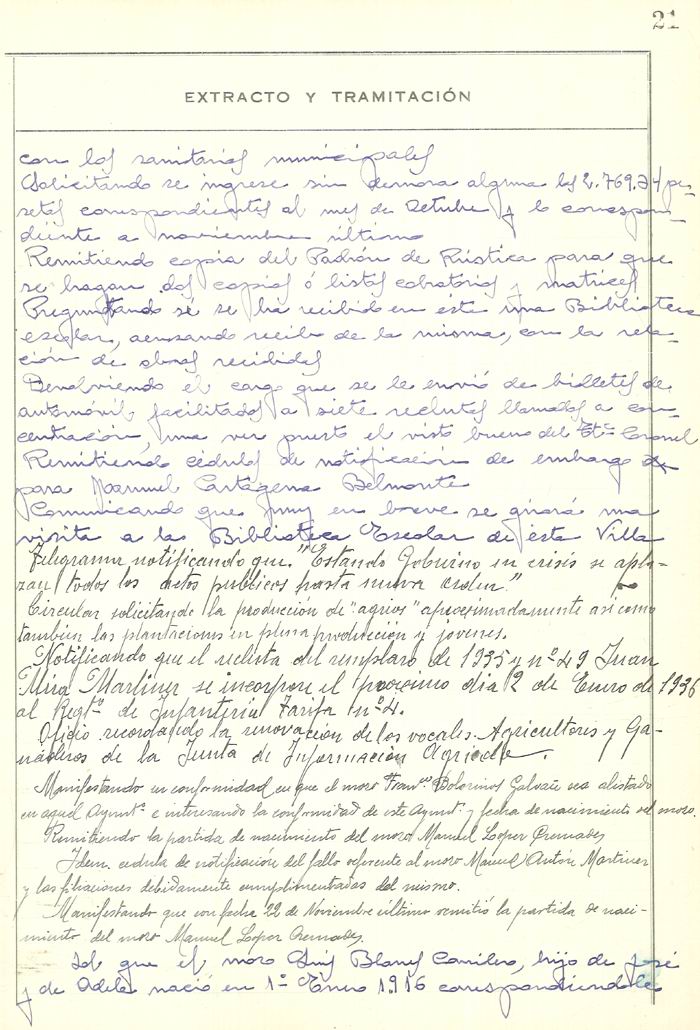 21
EXTRACTO Y TRAMITACIÓN
con los sanitarios municipales
Solicitando se ingrese sin demora alguna las 2.769.34 pe-
setas correspondientes al mes de Octubre y lo correspon-
diente a noviembre último
Remitiendo copia del Padrón de Rústica para que
se hagan dos copias ó listas cobratorias y matrices
Preguntando si se ha recibido en éste una Biblioteca
escolar, acusando recibo de la misma, con la rela-
ción de obras recibidas
Devolviendo el cargo que se le envió de billetes de
automóvil facilitados a siete reclutas llamados a con-
centración, una vez puesto el visto bueno del Tte. Coronel
Remitiendo cédulas de notificación de embargo
para Manuel Cartagena Belmonte
Comunicando que muy en breve se girará una
visita a las Biblioteca Escolar de ésta Villa
Telegrama notificando que. "Estando Gobierno en crisis se apla-
zan todos los actos públicos hasta nueva orden."
Circular solicitando la producción de "agrios" aproximadamente asi como
también las plantaciones en plena producción y jovenes.
Notificando que el recluta del remplazo de 1935 y nº 49 Juan
Mira Martinez se incorpore el proximo dia 2 de Enero de 1936
al Regtº de Infantería Tarifa nº 4.
Oficio recordando la renovación de los vocales Agricultores y Ga-
naderos de la Junta de Información Agricola.
Manifestando en conformidad en que el mozo Franco Bolorinos Galvañ sea alistado
en aquel Ayuntº e interesando la conformidad de este Ayuntº y fecha de nacimiento del mozo.
Remitiendo la partida de nacimiento del mozo Manuel Lopez
Idem. cedula de notificación del fallo referente al mozo Manuel Antón Martinez
y las filiaciones debidamente cumplimentadas del mismo.
Manifestando que con fecha 22 de Noviembre último remitió la partida de naci-
miento del mozo Manuel Lopez
Id. que el mozo Luis Blanes hijo de José
y de Adela nació en 1º Enero 1916 correspondiendole